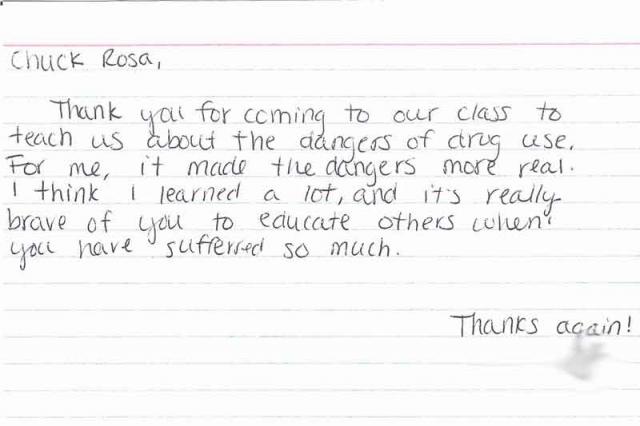 Chuck Rosa,
Thank you for coming to our class to
teach us about the dangers of drug use.
For me, it made the dangers more real.
I think I learned a lot, and it's really
brave of you to educate others when
you have suffered so much.
Thanks again!